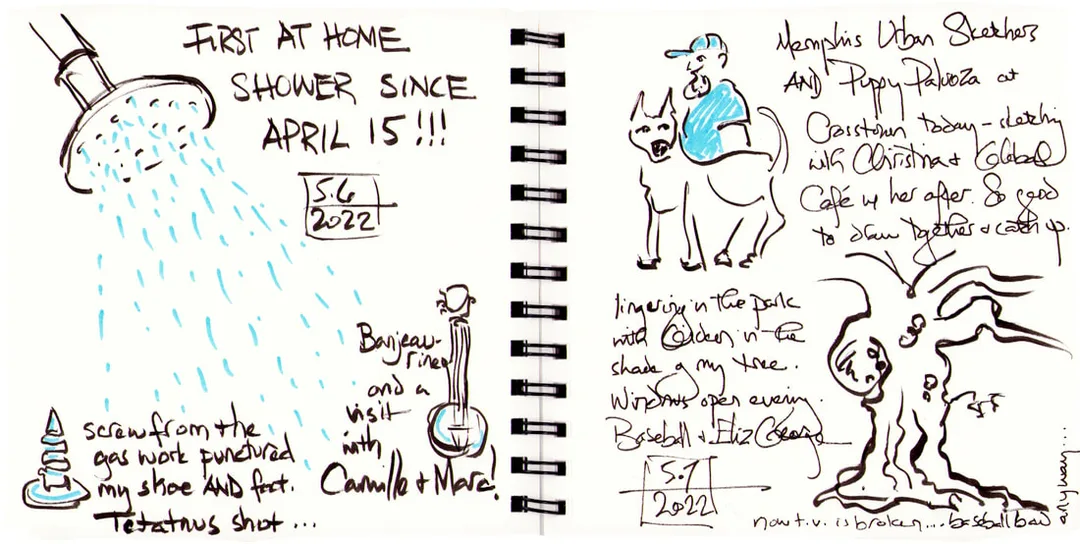 FIRST AT HOME
SHOWER SINCE
APRIL 15!!!
5.6
2022
Banjeau-
rine
and a
visit
with
Camille + Marc!
screw from the
gas work punctured
my shoe AND foot.
Tetatnus shot...
Memphis Urban Sketchers
AND Puppy Palooza at
Crosstown today - sketching
with Christina + Global
Café w her after. So good
to draw together + catch up.
lingering in the park
with in the
shade of my tree.
Windows open evening.
Baseball + Eliz George
5.7
2022
now t.v. is broken... baseball bad
anyway...